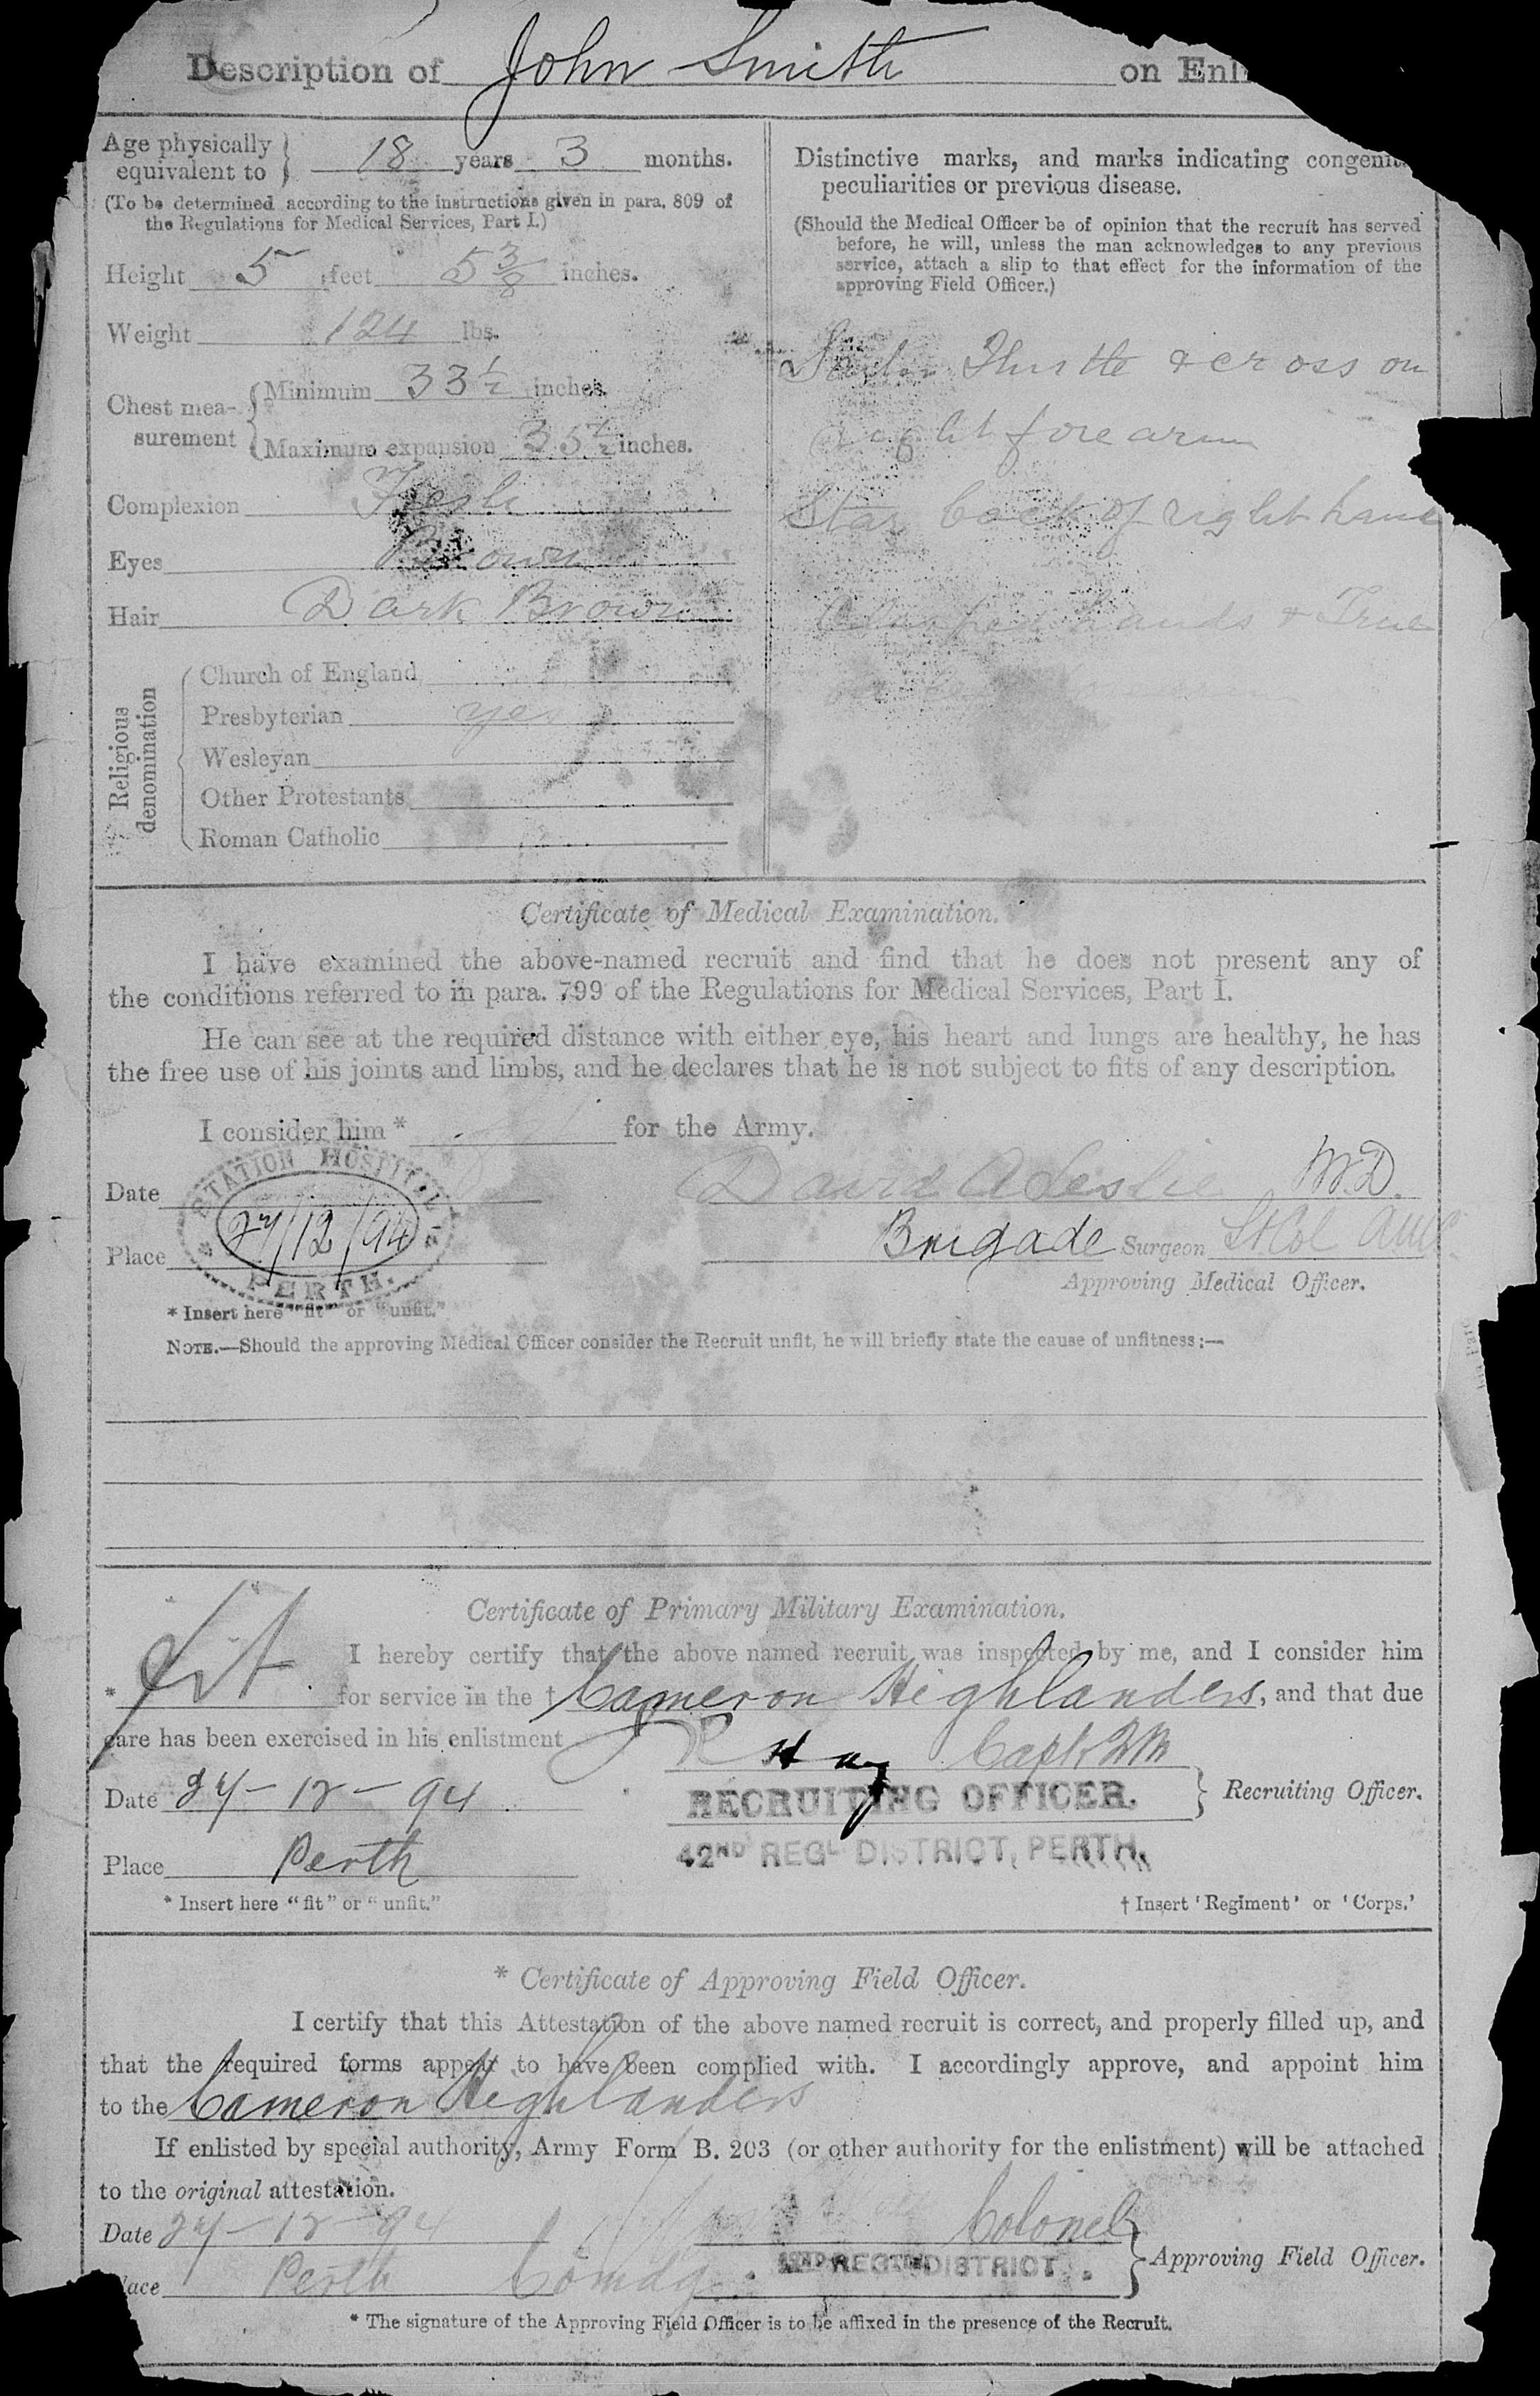 Description of John Smith on Enl
Age physically equivalent to } 18 years 3 months.
(To be determined according to the instructions given in para. 809 of
the Regulations for Medical Services, Part I.)
Height 5 feet 5 3/8 inches.
Weight 124 lbs.
Chest mea-surement { Minimum 33 1/2 inches.
Maximum expansion 35 1/2 inches.
Complexion Fresh
Eyes Brown
Hair Dark Brown
Religious denomination
Church of England
Presbyterian yes
Wesleyan
Other Protestants
Roman Catholic
Distinctive marks, and marks indicating congenit
peculiarities or previous disease.
(Should the Medical Officer be of opinion that the recruit has served
before, he will, unless the man acknowledges to any previous
service, attach a slip to that effect for the information of the
approving Field Officer.)
Thistle & cross on
right forearm
Star back of right hand
hands & True
Certificate of Medical Examination.
I have examined the above-named recruit and find that he does not present any of
the conditions referred to in para. 799 of the Regulations for Medical Services, Part I.
He can see at the required distance with either eye, his heart and lungs are healthy, he has
the free use of his joints and limbs, and he declares that he is not subject to fits of any description.
I consider him * for the Army.
STATION HOSPITAL
27/12/94
PERTH.
Date
Place
David A Leslie M.D.
Brigade Surgeon Lt Col AMS
Approving Medical Officer.
* Insert here "fit" or "unfit."
NOTE.—Should the approving Medical Officer consider the Recruit unfit, he will briefly state the cause of unfitness:—
Certificate of Primary Military Examination.
I hereby certify that the above named recruit was inspected by me, and I consider him
* fit for service in the † Cameron Highlanders, and that due
care has been exercised in his enlistment
R Hay Capt & QM
Date 27-12-94
RECRUITING OFFICER.
} Recruiting Officer.
42ND REGL DISTRICT, PERTH.
Place Perth
* Insert here "fit" or "unfit."
† Insert 'Regiment' or 'Corps.'
* Certificate of Approving Field Officer.
I certify that this Attestation of the above named recruit is correct, and properly filled up, and
that the required forms appear to have been complied with. I accordingly approve, and appoint him
to the Cameron Highlanders
If enlisted by special authority, Army Form B. 203 (or other authority for the enlistment) will be attached
to the original attestation.
Date 27-12-94
Colonel
Place Perth
Comdg. REGTL DISTRICT.
} Approving Field Officer.
* The signature of the Approving Field Officer is to be affixed in the presence of the Recruit.